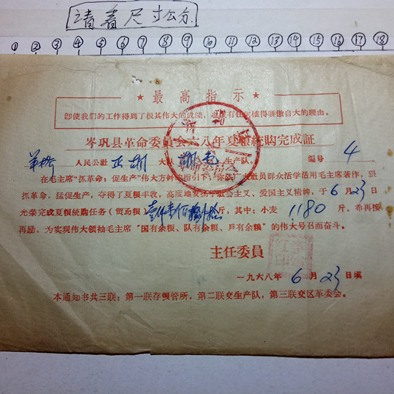 请看尺寸公分
1 2 3 4 5 6 7 8 9 10 11 12 13 14 15 16 17 18
★ 最高指示 ★
即使我们的工作得到了极其伟大的成绩，也没有任何值得骄傲自大的理由。
岑巩县革命委员会六八年夏粮统购完成证
人民公社 大队 生产队 编号 4
在毛主席“抓革命，促生产”伟大方针指引下，社员群众活学活用毛主席著作，狠
抓革命，猛促生产，夺得了夏粮丰收，高度地发扬了社会主义、爱国主义精神，于6月23日
光荣完成夏粮统购任务（贸易粮）斤，其中：小麦1180斤，希再接
再励，为实现伟大领袖毛主席“国有余粮、队有余粮、户有余粮”的伟大号召而奋斗。
主任委员
一九六八年6月23日填
本通知书共三联：第一联存粮管所，第二联交生产队，第三联交区革委会。